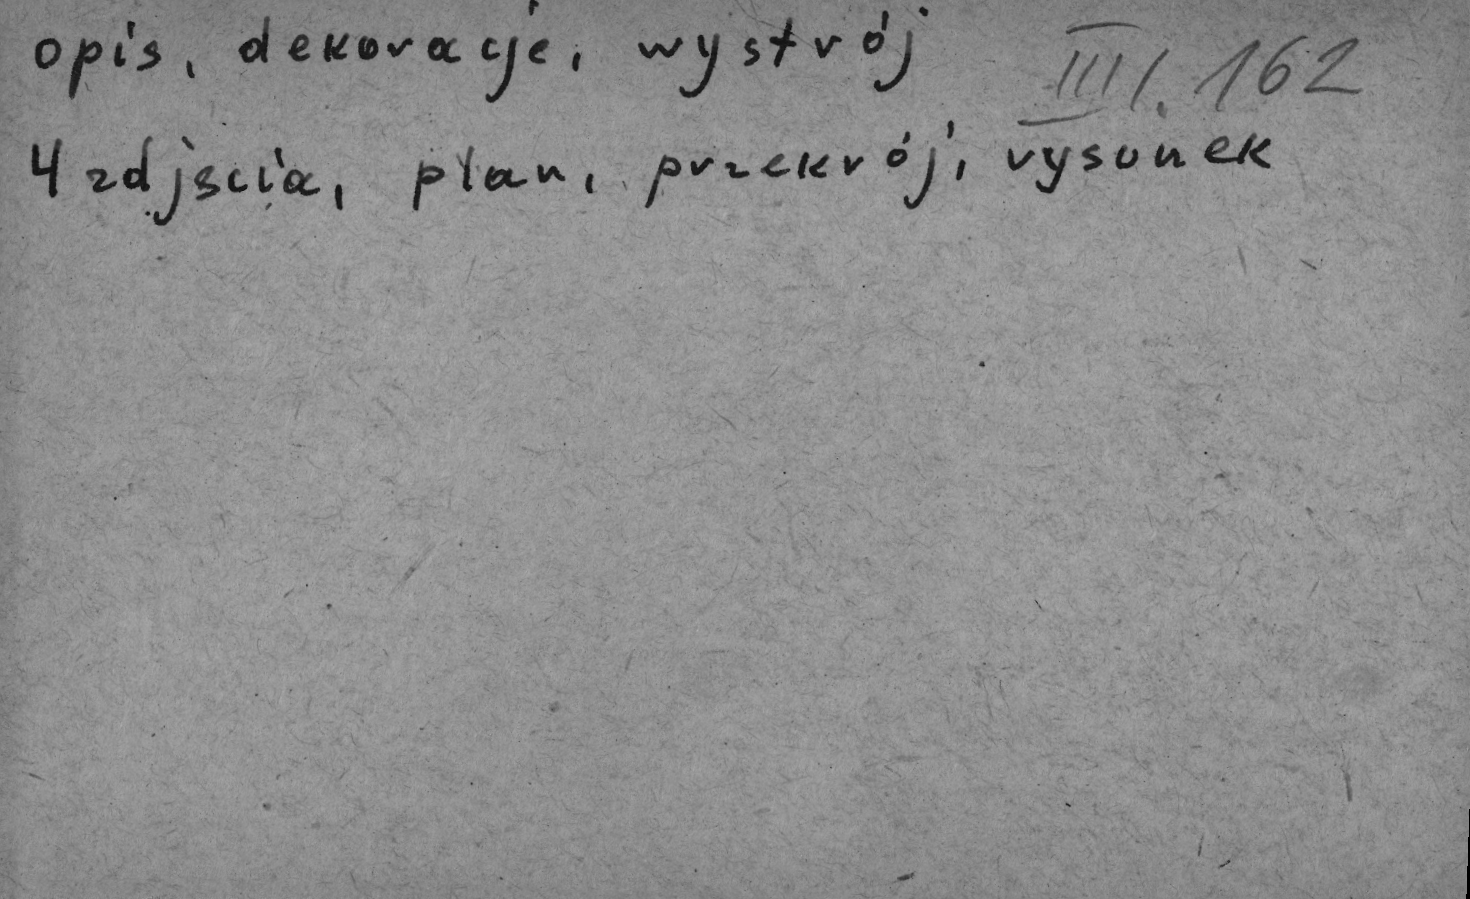 opis, dekoracje, wystrój III/. 162
4 zdjścia, plan, przekrój, rysunek